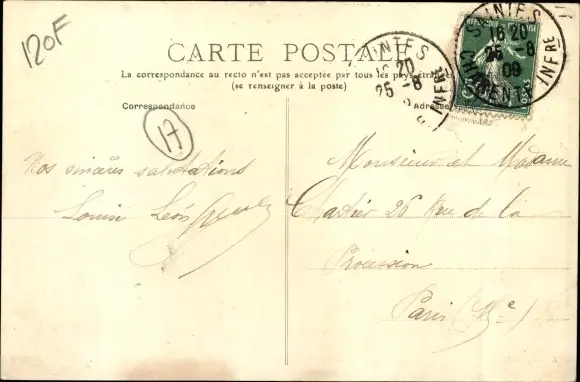 120F
CARTE POSTALE
La correspondance au recto n'est pas acceptée par tous les pays étrangers
(se renseigner à la poste)
Correspondance
Adresse
17
SAINTES
16 20
25 - 8
09
CHARENTE INFRE
REPUBLIQUE FRANÇAISE
Nos sincères salutations
Louise Léon
Monsieur et Madame
Chartier 26 Rue de la
Procession
Paris